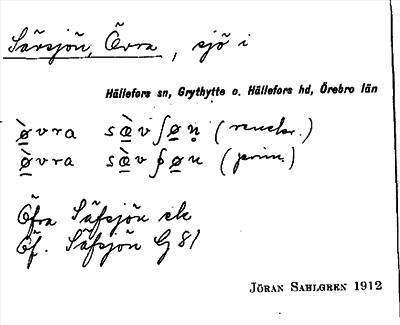 Sävsjön, Övra, sjö i
Hällefors sn, Grythytte o. Hällefors hd, Örebro län
ø̀vra sæ̀vʃøn (
ø̀vra sæ̀vʃøn (
Öfra Säfsjön ek
Öf. Säfsjön G 81
JÖRAN SAHLGREN 1912